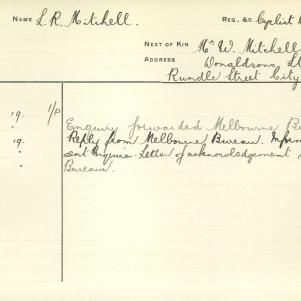 NAME L. R. Mitchell. REG. &C. Cyclist
NEXT OF KIN Mr. W. Mitchell
ADDRESS Donaldsons
Rundle Street City
19. 1/P Enquiry forwarded Melbourne
19. Reply from Melbourne Bureau.
" sent Inquirer. Letter of acknowledgement
" Bureau.